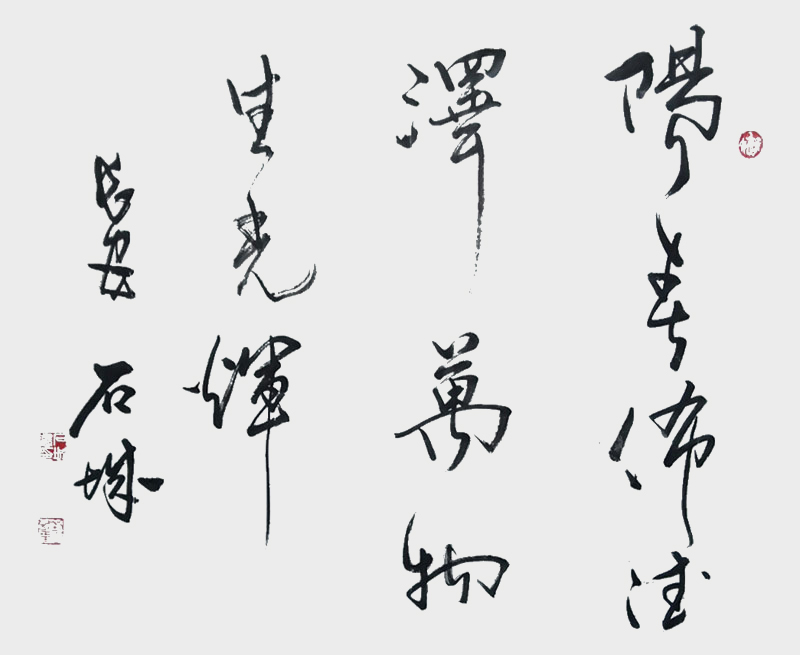 陽春佈德
澤萬物
生光煇
長安 石城